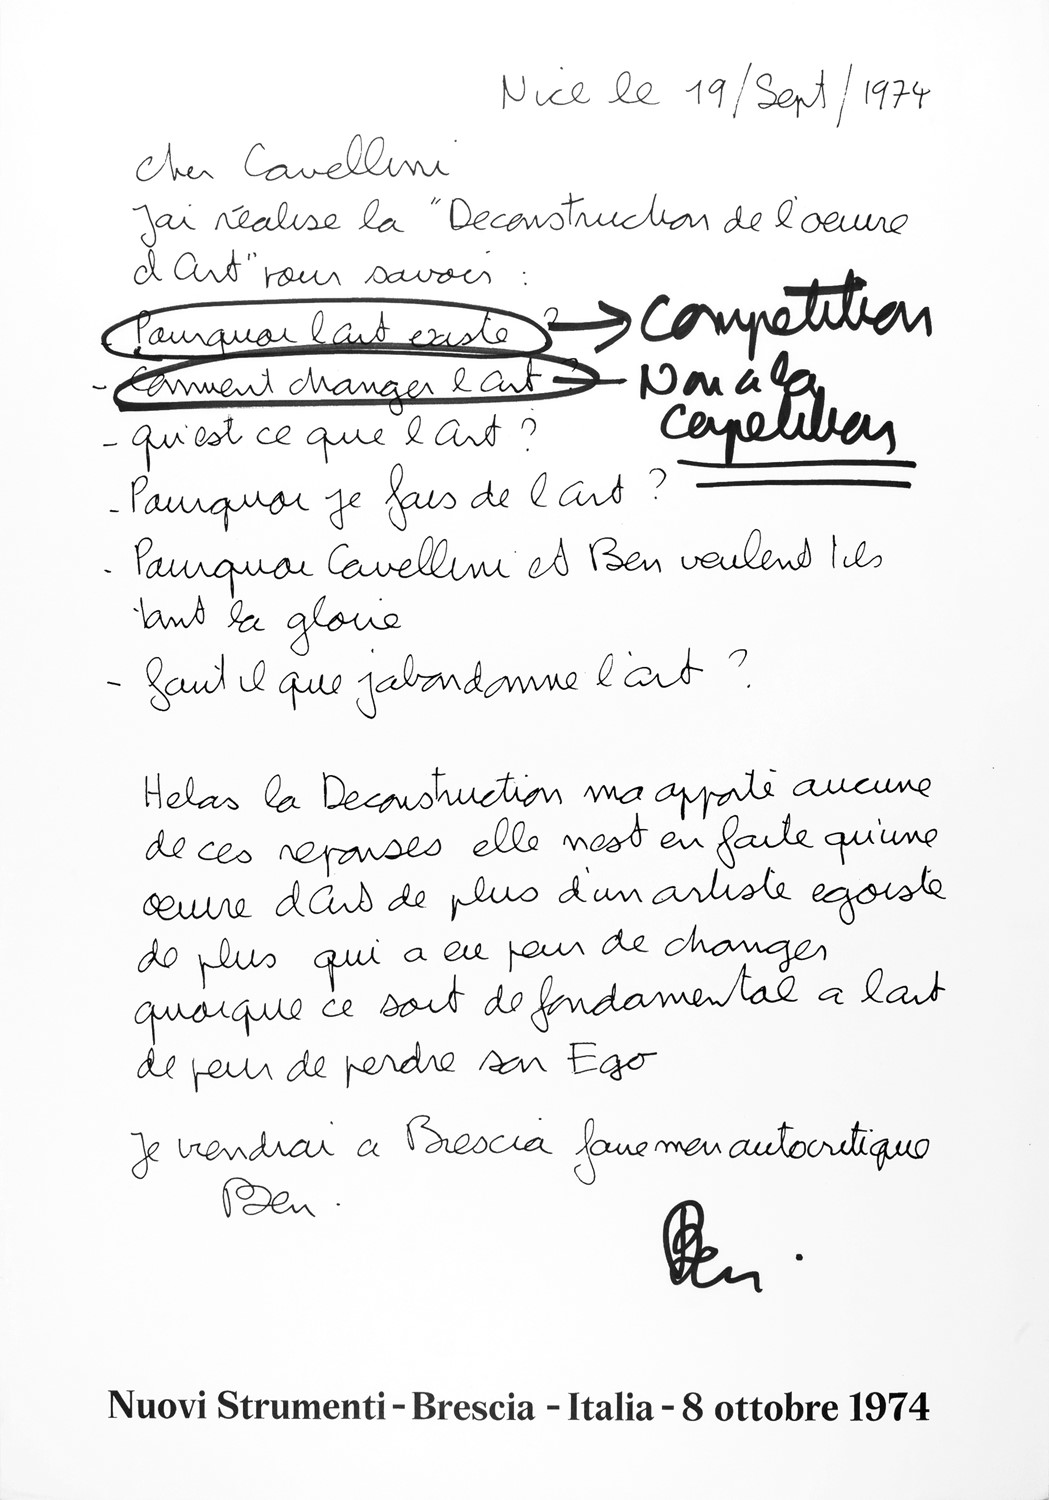 Nice le 19/Sept/1974
Cher Cavellini
J'ai réalise la "Deconstruction de l'oeuvre
d'Art" pour savoir :
- Pourquoi l'art existe ? → Competition
- Comment changer l'art ? - Non a la
competition
- qu'est ce que l'art ?
- Pourquoi je fais de l'art ?
- Pourquoi Cavellini et Ben veulent t'ils
tant la gloire
- faut il que j'abandonne l'art ?
Helas la Deconstruction ma apporté aucune
de ces reponses elle nest en faite qu'une
oeuvre d'Art de plus d'un artiste egoiste
de plus qui a eu peur de changer
quoique ce soit de fondamental a l'art
de peur de perdre son Ego
Je viendrai a Brescia faire mon autocritique
Ben.
Ben.
Nuovi Strumenti - Brescia - Italia - 8 ottobre 1974